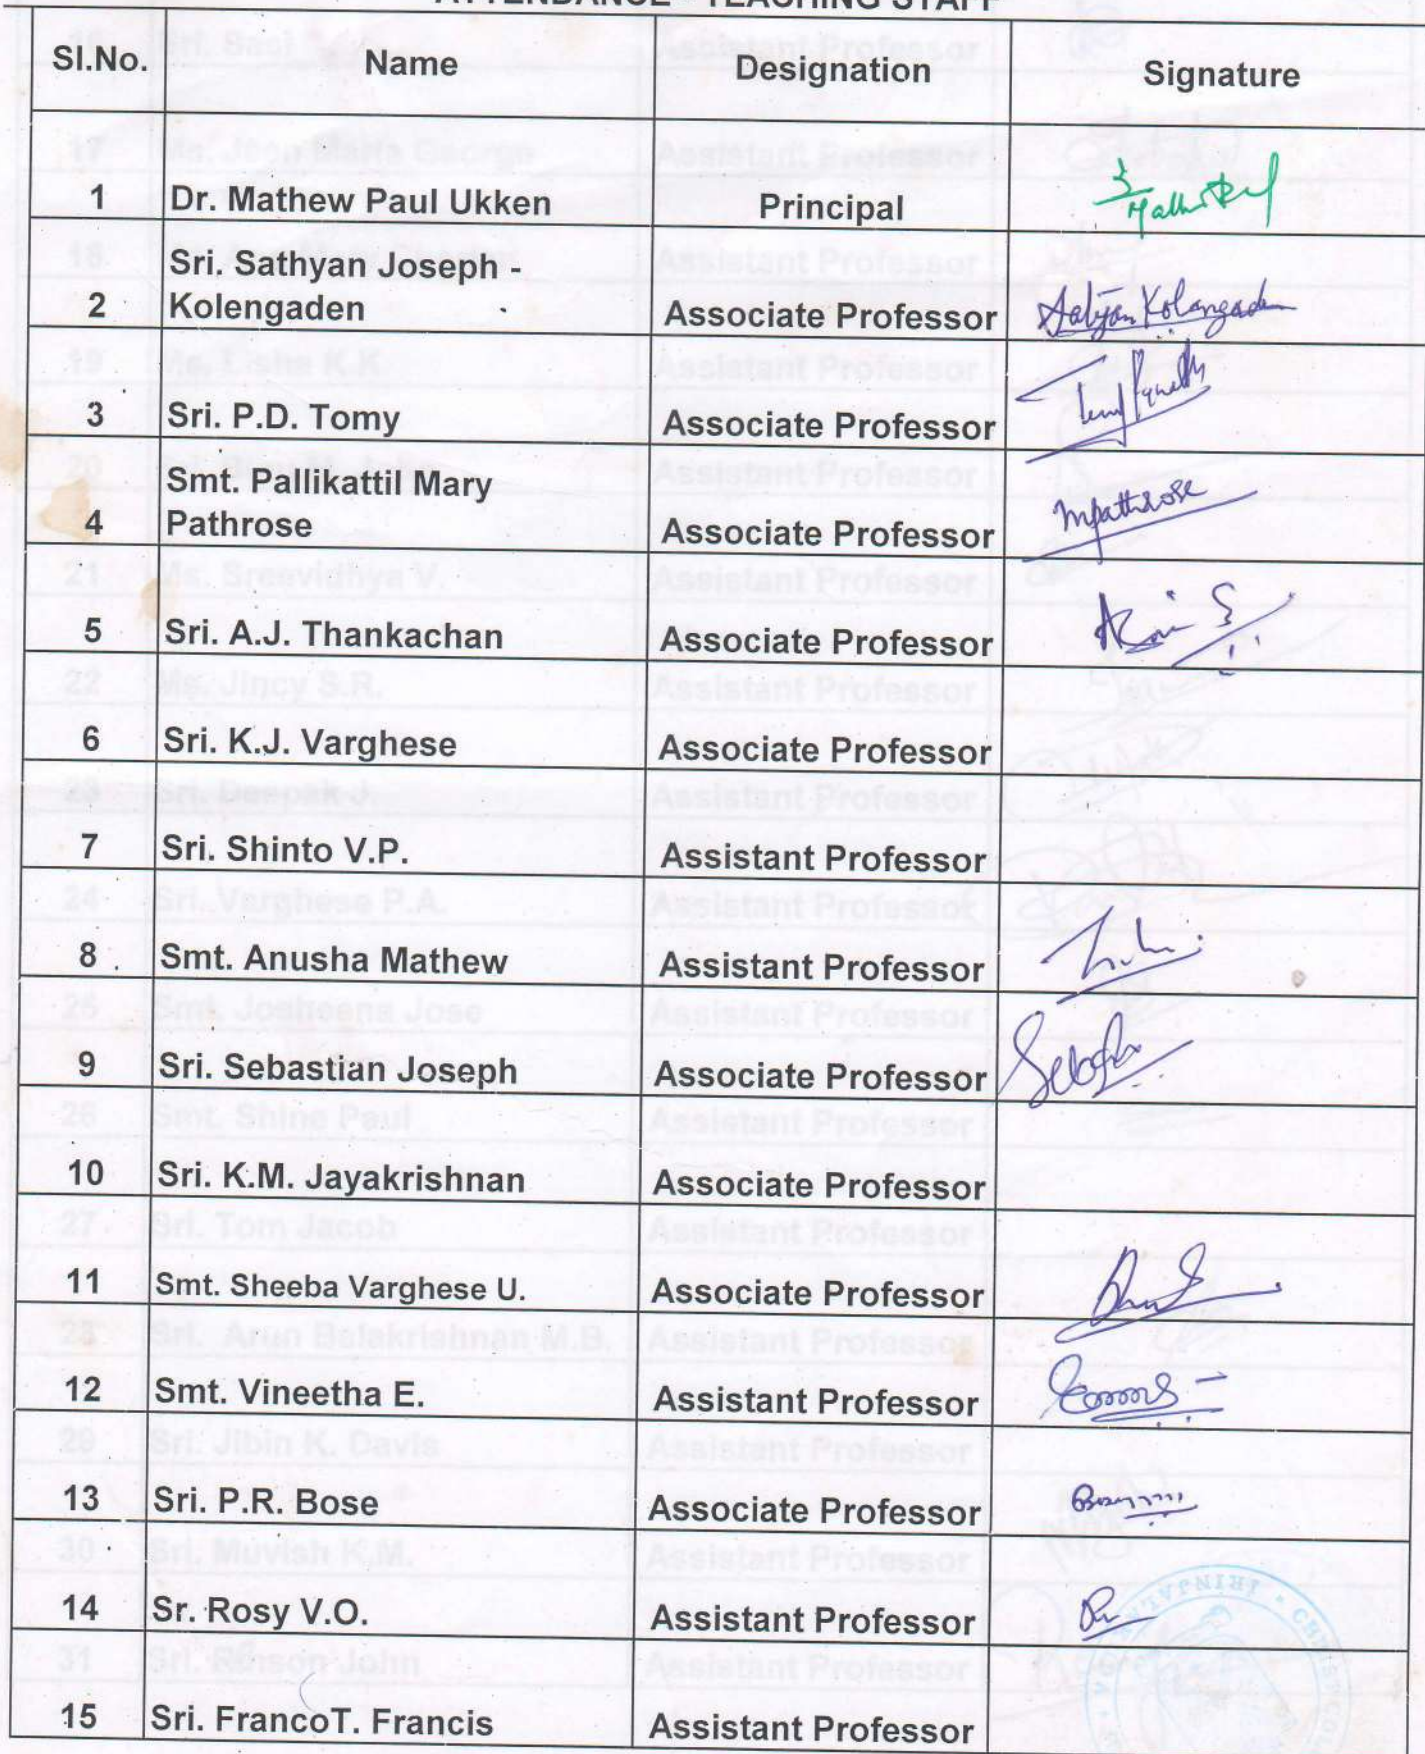 ATTENDANCE - TEACHING STAFF
Sl.No. Name Designation Signature
1 Dr. Mathew Paul Ukken Principal
Sri. Sathyan Joseph -
2 Kolengaden Associate Professor Satyan Kolangaden
3 Sri. P.D. Tomy Associate Professor
Smt. Pallikattil Mary
4 Pathrose Associate Professor mpathrose
5 Sri. A.J. Thankachan Associate Professor
6 Sri. K.J. Varghese Associate Professor
7 Sri. Shinto V.P. Assistant Professor
8 Smt. Anusha Mathew Assistant Professor
9 Sri. Sebastian Joseph Associate Professor
10 Sri. K.M. Jayakrishnan Associate Professor
11 Smt. Sheeba Varghese U. Associate Professor
12 Smt. Vineetha E. Assistant Professor
13 Sri. P.R. Bose Associate Professor
14 Sr. Rosy V.O. Assistant Professor
15 Sri. FrancoT. Francis Assistant Professor